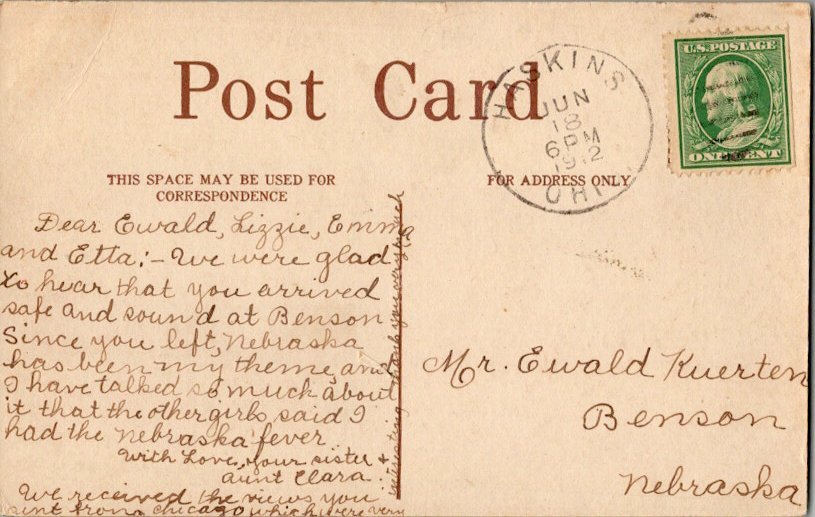 Post Card
HASKINS
JUN
18
6 PM
1912
OHI
U.S. POSTAGE
ONE CENT
THIS SPACE MAY BE USED FOR
CORRESPONDENCE
FOR ADDRESS ONLY
Dear Ewald, Lizzie, Emma
and Etta:- We were glad
to hear that you arrived
safe and sound at Benson
Since you left, Nebraska
has been my theme, and
I have talked so much about
it that the other girls said I
had the Nebraska fever
With Love, your sister +
aunt Clara.
We received the views you
sent from Chicago which were very
interesting thank you very much
Mr. Ewald Kuerten
Benson
Nebraska